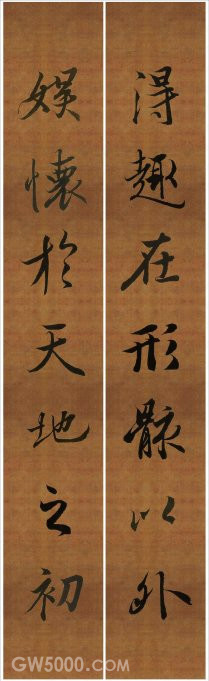 得趣在形骸以外
娱懷於天地之初
GW5000.com